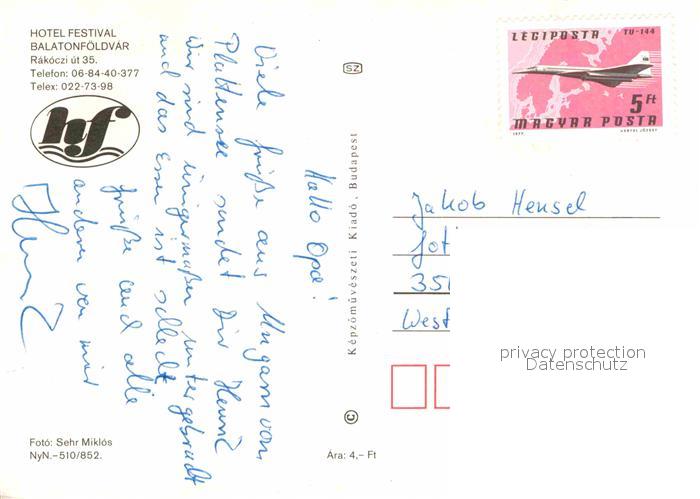 HOTEL FESTIVAL
BALATONFÖLDVÁR
Rákóczi út 35.
Telefon: 06-84-40-377
Telex: 022-73-98
hf
Hallo Opa!
Viele Grüße aus Ungarn vom
Plattensee sendet Dir Heinz
Wir sind einigermaßen untergebracht
und das Essen ist schlecht
Grüße auch alle
anderen von mir
Heinz
Fotó: Sehr Miklós
NyN.–510/852.
SZ
Képzőművészeti Kiadó, Budapest
©
Ára: 4,– Ft
LÉGIPOSTA TU-144
5 Ft
MAGYAR POSTA
1977. VERTEL JÓZSEF
Jakob Hensel
Got
35
West
privacy protection
Datenschutz